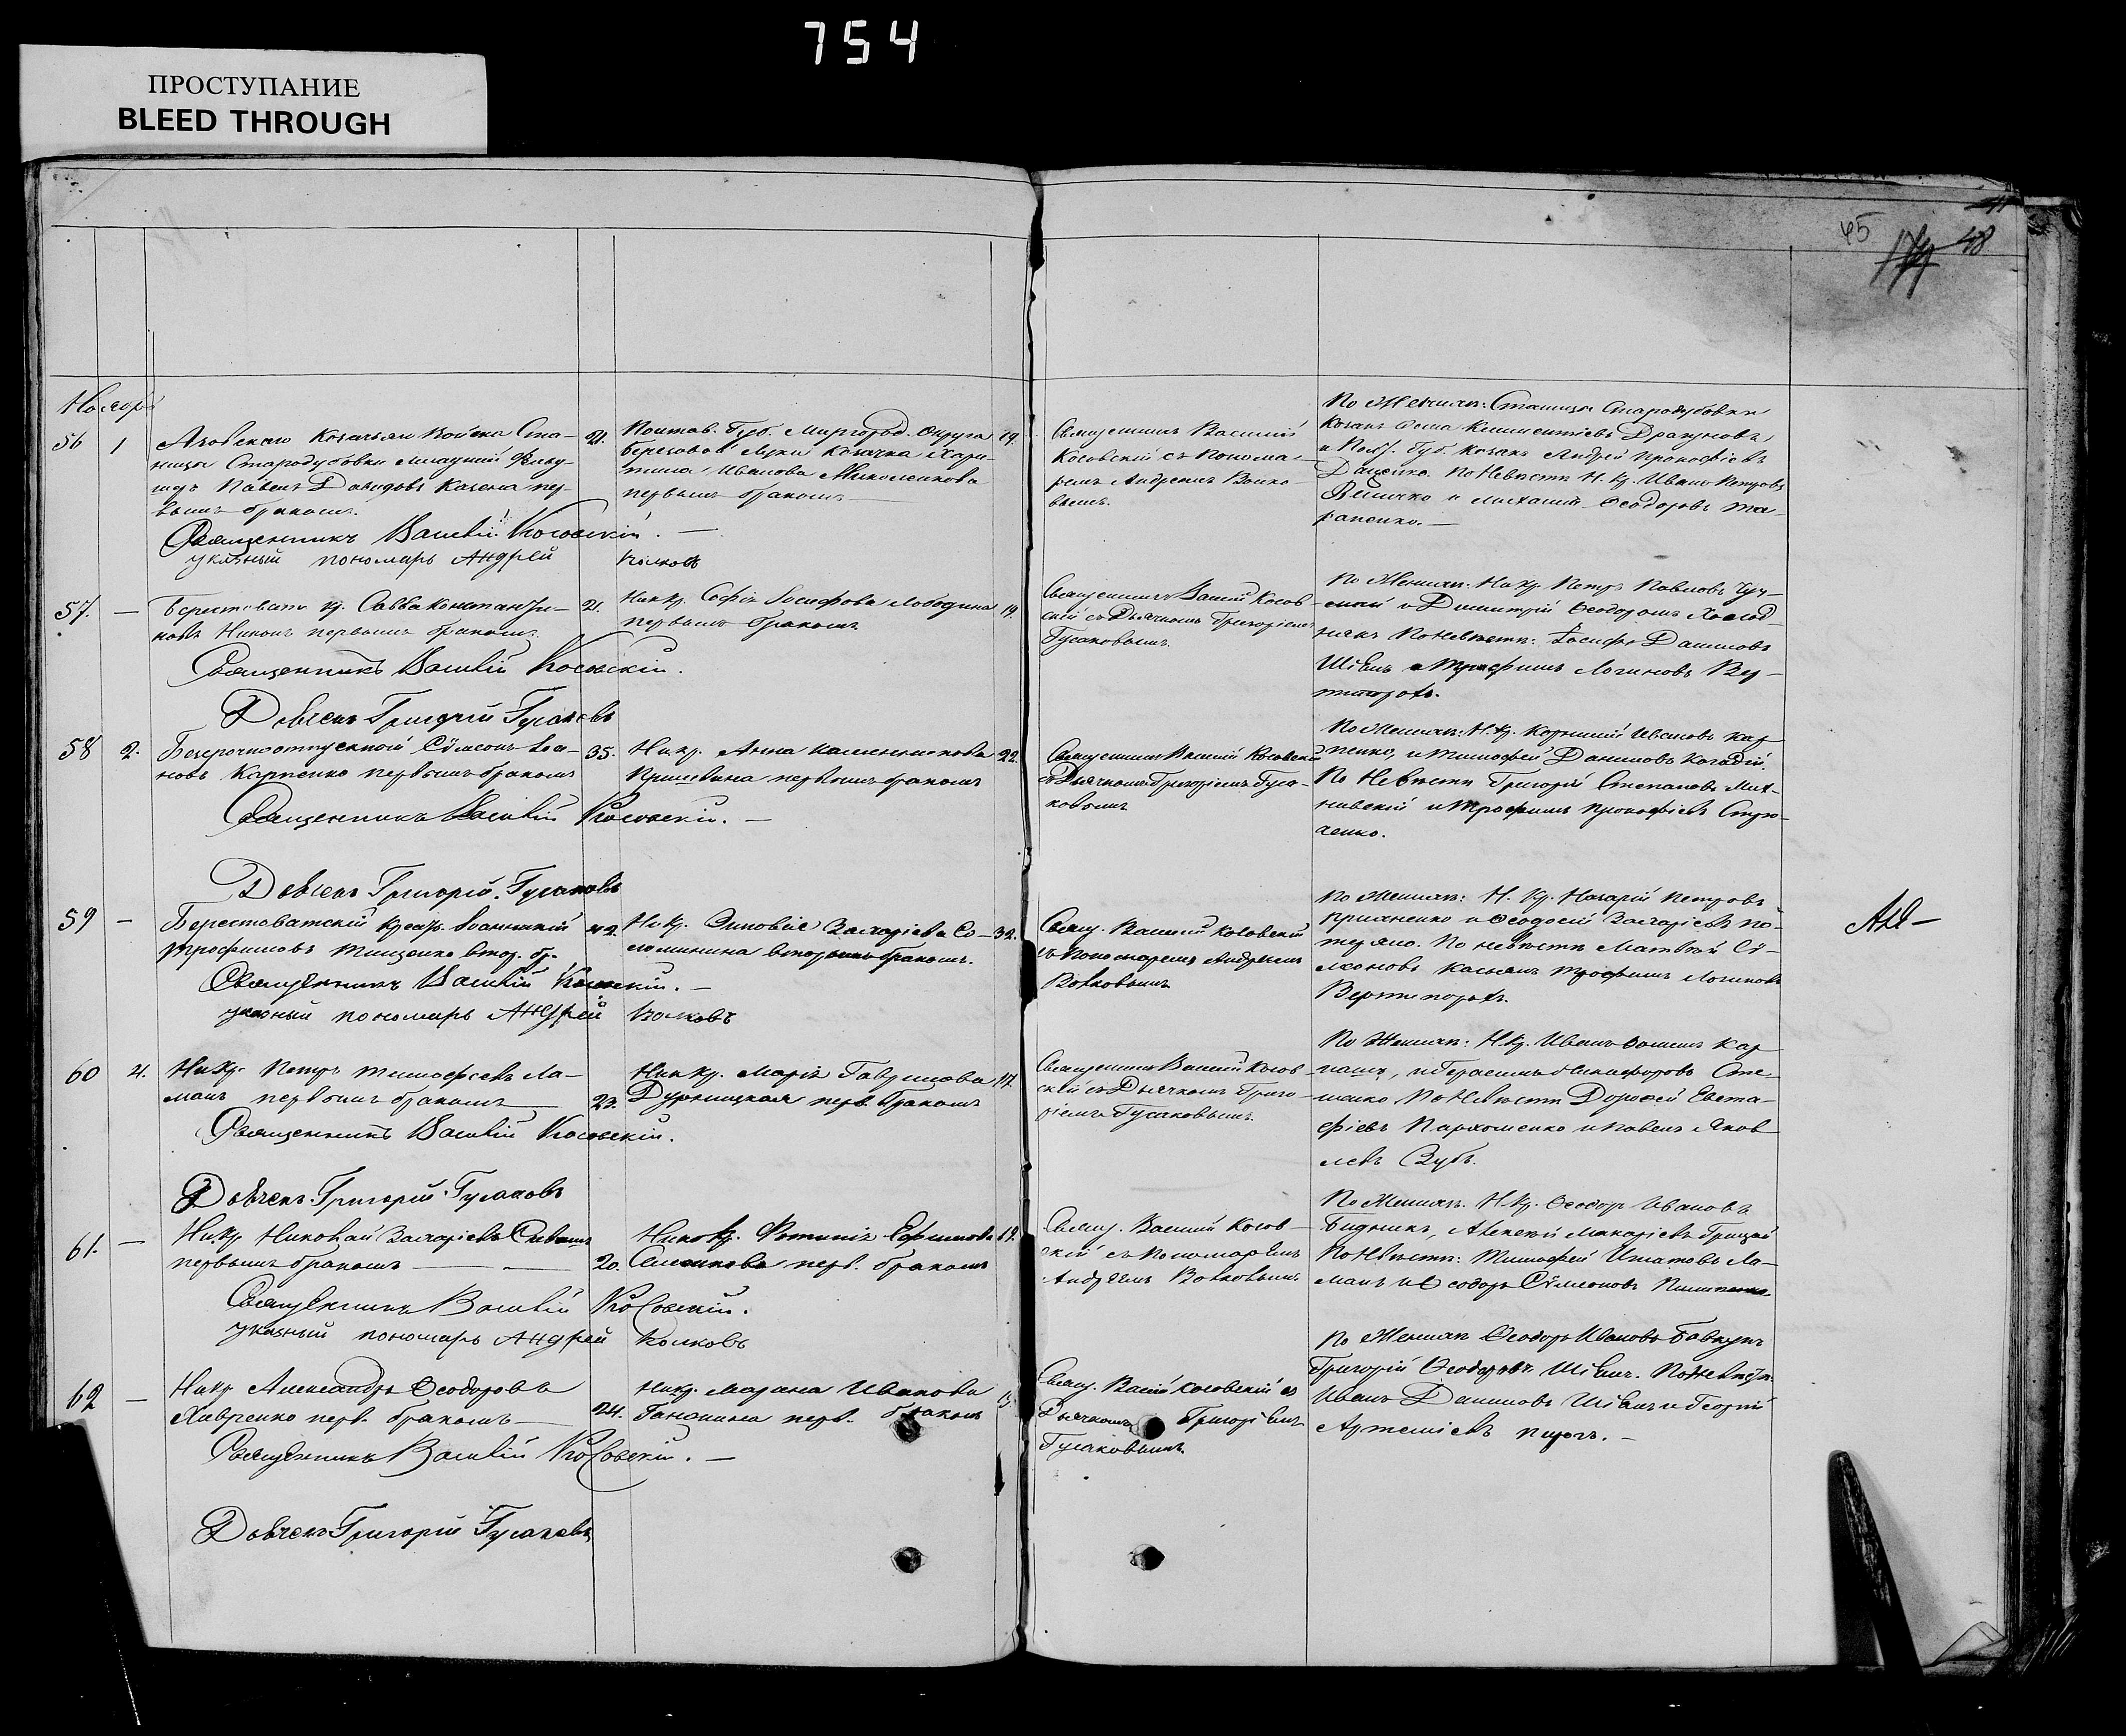 754
ПРОСТУПАНИЕ
BLEED THROUGH
45
48
Ноября
56 1
Азовскаго Козачьяго Войска Ста-
ницы Стародубовки младшій
Павелъ Давидовъ пер-
вымъ бракомъ.
21.
Полтав. Губ. Миргород. округа
Березовой Луки козачка Хари-
тина Иванова
первымъ бракомъ
19.
Священникъ Василій
Косовскій съ понома-
ремъ Андреемъ Волко-
вымъ.
По Женихѣ: Станицы Стародубовки
Козакъ Драгуновъ,
и Губ. козакъ Андрей Прокофіевъ
Даценко. По Невѣстѣ Н. Кр. Иванъ Петровъ
Величко и Михаилъ Ѳеодоровъ Та-
раненко.
Священникъ Василій Косовскій.
указный пономарь Андрей Волковъ
57. —
Берестоват. кр. Савва Константи-
новъ первымъ бракомъ
21.
Ник. Кр. Софія Іосифова Лободина
первымъ бракомъ
19.
Священникъ Василій Косов-
скій съ Дьячкомъ Григоріемъ
Гусаковымъ.
По Женихѣ: Н. Кр. Петръ Павловъ
и Димитрій
По Невѣстѣ: Іосифъ Даниловъ
Шіенъ и Трофимъ Логиновъ Вер-
типорохъ.
Священникъ Василій Косовскій.
Дьячекъ Григорій Гусаковъ
58 2.
Безсрочноотпускной Сѵмеонъ Іоа-
новъ Карпенко первымъ бракомъ
35.
Ник. кр. Анна
первымъ бракомъ
22.
Священникъ Василій Косовскій
съ Дьячкомъ Григоріемъ Гуса-
ковымъ
По Женихѣ: Н. Кр. Корнилій Ивановъ Кар-
пенко, и Тимофей Даниловъ
По Невѣстѣ Григорій Степановъ
и Трофимъ Прокофіевъ
Священникъ Василій Косовскій.
Дьячекъ Григорій Гусаковъ
59 —
Берестоватскій Іоанникій
Трофимовъ Тищенко втор. бр.
42.
Ник. кр. Зиновія Захаріева Со-
ломинина вторымъ бракомъ.
32.
Свящ. Василій Косовскій
съ Пономаремъ Андреемъ
Волковымъ
По Женихѣ: Н. Кр. Назарій Петровъ
и Ѳеодосій Захаріевъ По-
теряло. По невѣстѣ Матвѣй Сѵ-
меоновъ Касьянъ Трофимъ Логиновъ
Вертипорохъ.
Ал —
Священникъ Василій Косовскій.
указный пономарь Андрей Волковъ
60 4.
Ник. Кр. Петръ Тимофеевъ Ла-
манъ первымъ бракомъ
23.
Ник. Кр. Марія Гаврилова
Дурницкая перв. бракомъ
17.
Священникъ Василій Косов-
скій съ Дьячкомъ Григо-
ріемъ Гусаковымъ.
По Женихѣ: Н. Кр. Иванъ
и Герасимъ Никифоровъ
По Невѣстѣ Дорофей Евста-
фіевъ Пархоменко и Павелъ Яков-
левъ Зубъ.
Священникъ Василій Косовскій.
Дьячекъ Григорій Гусаковъ
61. —
Ник. Кр. Николай Захаріевъ
первымъ бракомъ
20.
Ник. Кр. Фотинія Ефимова
перв. бракомъ
Свящ. Василій Косов-
скій съ Пономаремъ
Андреемъ Волковымъ
По Женихѣ: Н. Кр. Ѳеодоръ Ивановъ
Алексѣй Макаріевъ Грицай
По Невѣстѣ: Тимофей Игнатовъ Ла-
манъ и Ѳеодоръ Сѵмеоновъ
Священникъ Василій Косовскій.
указный пономарь Андрей Волковъ
62 —
Ник. Кр. Александръ Ѳеодоровъ
Хивренко перв. бракомъ
24.
Ник. кр. Марина Иванова
перв. бракомъ
Свящ. Васил. Косовскій съ
Дьячкомъ Григоріемъ
Гусаковымъ.
По Женихѣ Ѳеодоръ Ивановъ
Григорій Ѳеодоровъ Шіенъ. По Невѣстѣ
Иванъ Даниловъ Шіенъ и Георгій
Артеміевъ
Священникъ Василій Косовскій.
Дьячекъ Григорій Гусаковъ